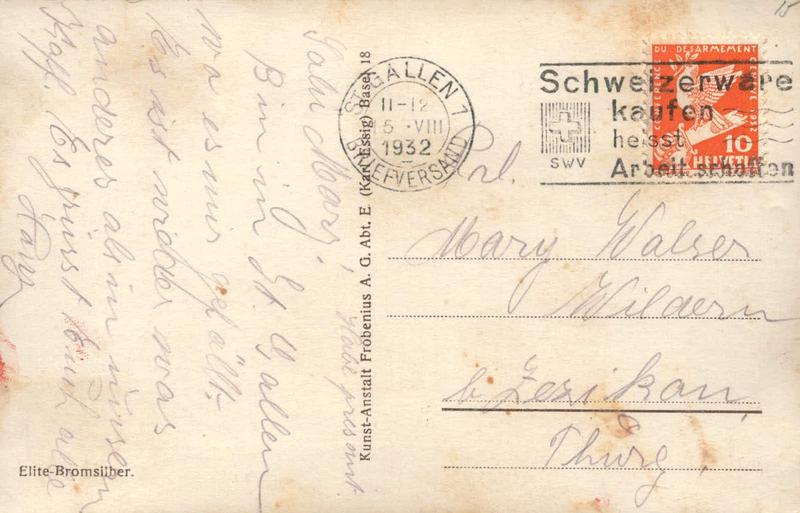 15
Salü Mary,
Bin in St. Gallen
wo es mir gefällt.
Es ist wieder was
anderes als in unserm
Kaff. Es grüsst Euch alle
Kunst-Anstalt Frobenius A. G. Abt. E. (Karl Essig) Basel 18
Elite-Bromsilber.
ST. GALLEN 1
11-12
5. VIII
1932
BRIEFVERSAND
Schweizerware
kaufen
heisst
Arbeit schaffen
SWV
DU DESARMEMENT
1932
10
HELVETIA
Frl.
Mary Walser
Wildern
b. Zezikon,
Thurg.